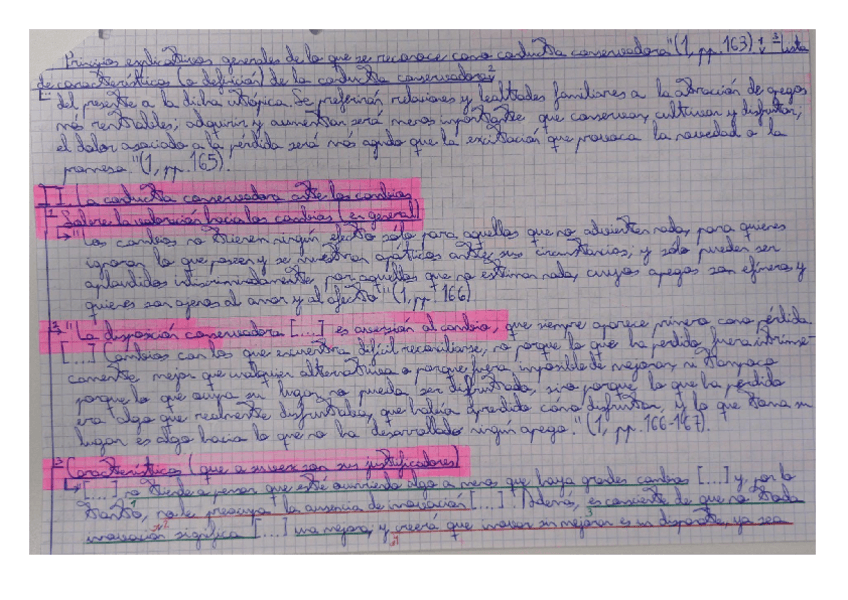 "Principios explicativos generales de lo que se reconoce como conducta conservadora" (1, pp. 163) 1 y 3 = lista
de características (o definición) de la conducta conservadora 2
del presente a la dicha utópica. Se preferirán relaciones y lealtades familiares a la atracción de apegos
más rentables; adquirir y aumentar será menos importante que conservar, cultivar y disfrutar,
el dolor asociado a la pérdida será más agudo que la excitación que provoca la novedad o la
promesa." (1, pp. 165).
II. La conducta conservadora ante los cambios
1 Sobre la valoración hacia los cambios (en general)
↳ "Los cambios no tienen ningún efecto sólo para aquellos que no advierten nada, para quienes
ignoran lo que poseen y se muestran apáticos ante sus circunstancias; y sólo pueden ser
aplaudidos indiscriminadamente por aquellos que no estiman nada, cuyos apegos son efímeros y
quienes son ajenos al amor y al afecto" (1, pp. 166)
2 "La disposición conservadora [...] es aversión al cambio, que siempre aparece primero como pérdida.
[...] Cambios con los que encuentra difícil reconciliarse, no porque lo que ha perdido fuera intrínse-
camente mejor que cualquier alternativa o porque fuera imposible de mejorar, ni tampoco
porque lo que ocupa su lugar no pueda ser disfrutado, sino porque lo que ha perdido
era algo que realmente disfrutaba, que había aprendido cómo disfrutar, y lo que toma su
lugar es algo hacia lo que no ha desarrollado ningún apego." (1, pp. 166-167).
3 Características (que a su vez son sus justificadores)
↳ [...] no tiende a pensar que esté ocurriendo algo a menos que haya grandes cambios [...] y, por lo
tanto, no le preocupa la ausencia de innovación [...]. Además, es consciente de que no toda
innovación significa [...] una mejora, y creerá que innovar sin mejorar es un disparate, ya sea